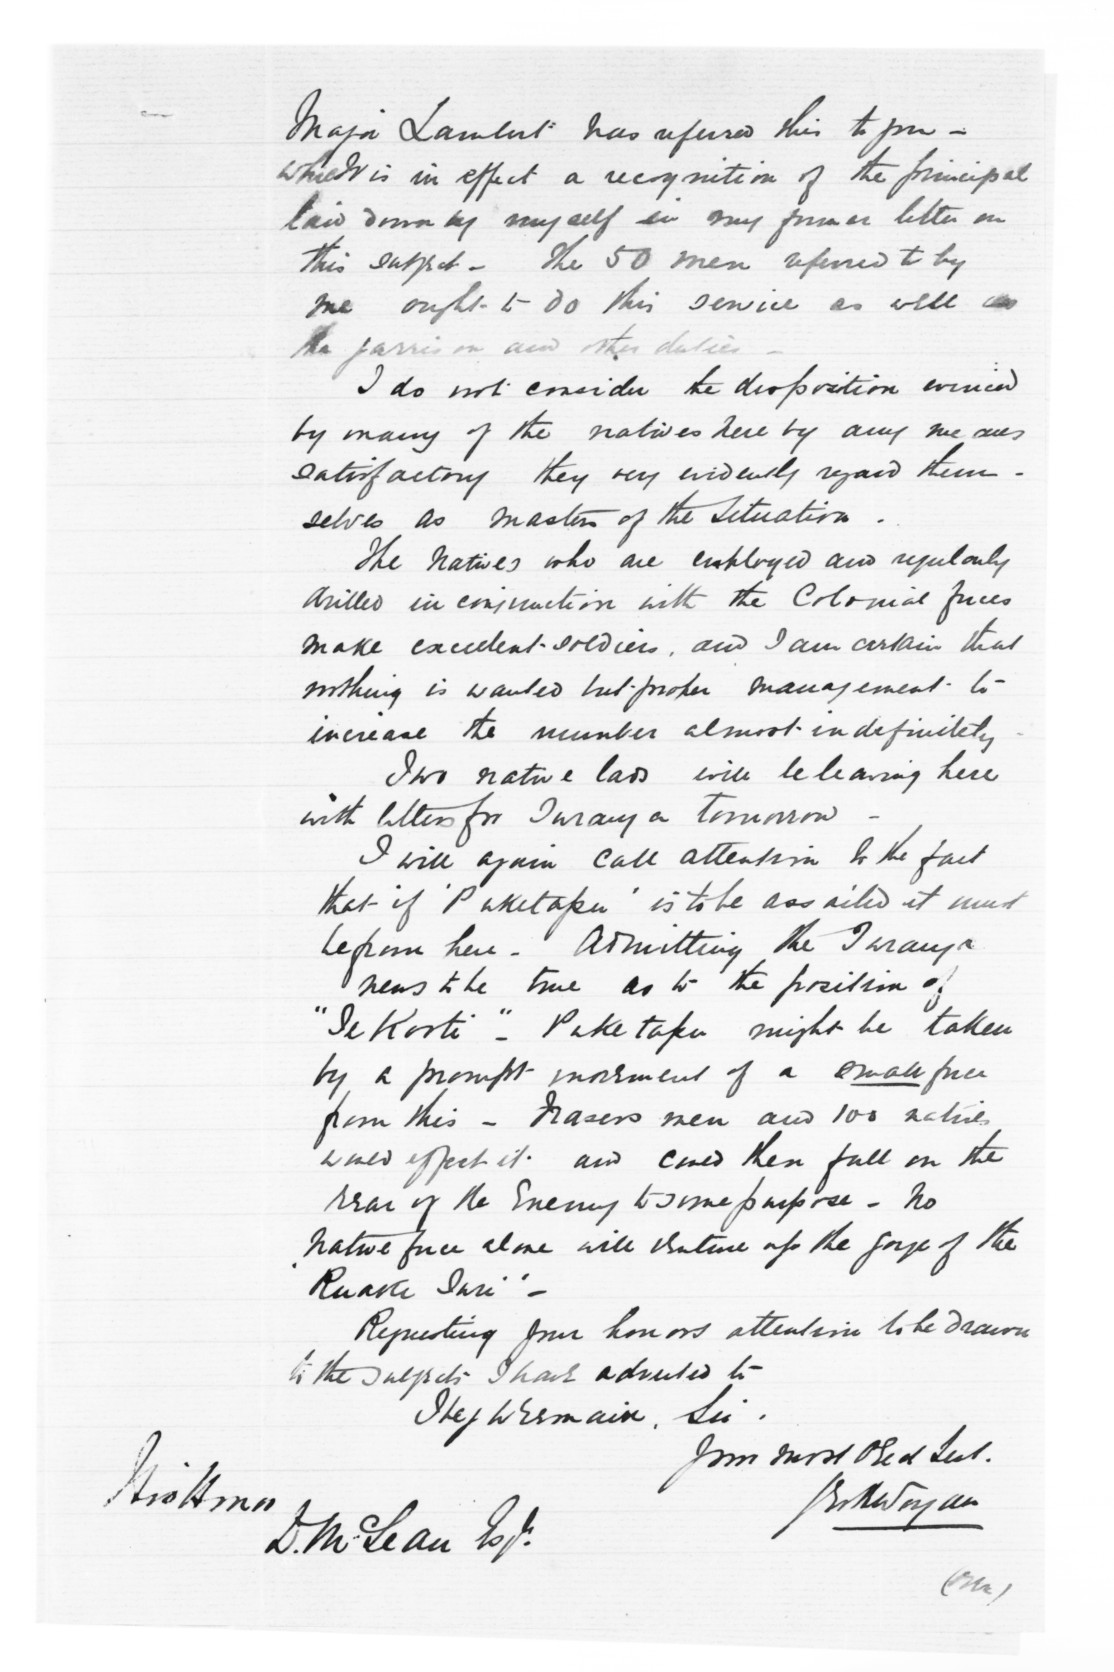 Major Lambert has referred this to you –
which is in effect a recognition of the principal
laid down by myself in my former letter on
this subject – The 50 men referred to by
me ought to do this service as well as
the garrison and other duties –
I do not consider the disposition evinced
by many of the natives here by any means
satisfactory they very evidently regard them-
selves as masters of the Situation.
The Natives who are employed and regularly
drilled in conjunction with the Colonial forces
make excellent soldiers, and I am certain that
nothing is wanted but proper management to
increase the number almost indefinitely –
Two native lads will be leaving here
with letters for Turanga tomorrow –
I will again call attention to the fact
that if 'Puketapu' is to be assailed it must
be from here – Admitting the Turanga
news to be true as to the position of
"Te Kooti" – Puketapu might be taken
by a prompt movement of a small force
from this – Frasers men and 100 natives
would effect it and could then fall on the
rear of the Enemy to some purpose – No
Native force alone will venture up the gorge of the
'Ruake Turi' –
Requesting your honors attention to be drawn
to the subjects I have adverted to
I beg to remain, Sir.
Your most Obed Servt.
His Honor
D. McLean Esqr.
(Over)